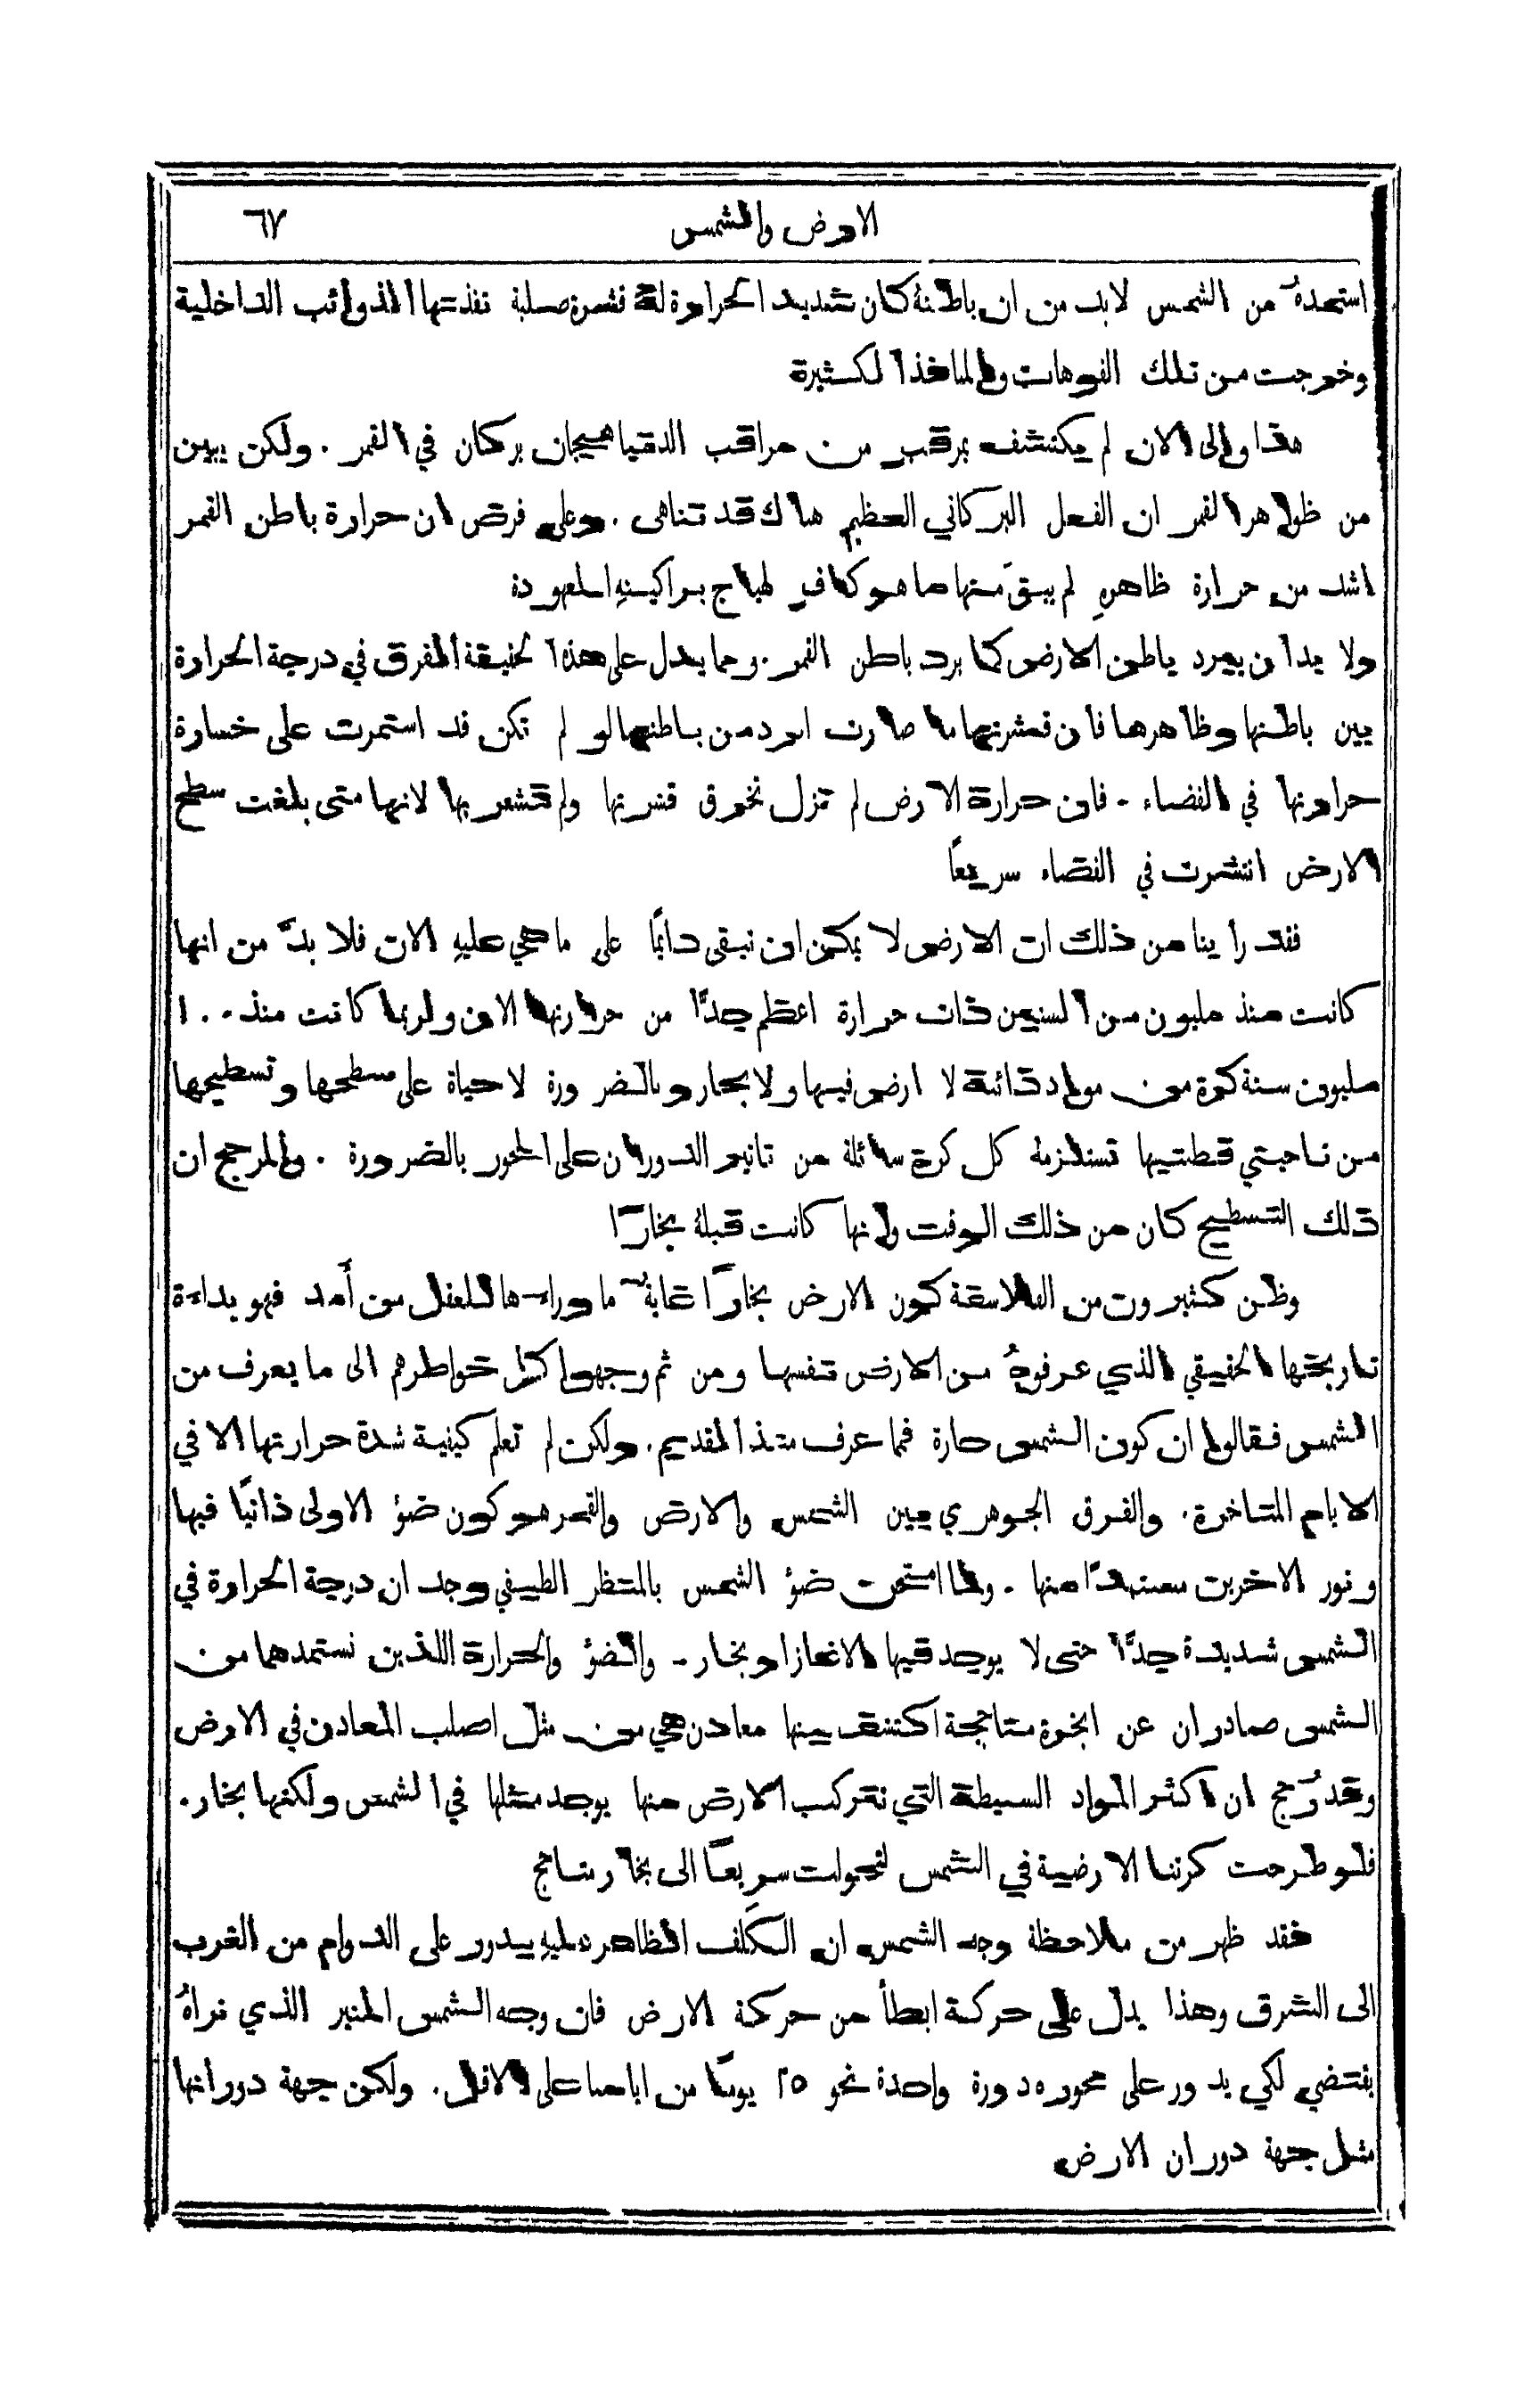 الارض والشمس ٦٧
استمدهُ من الشمس لابد من ان باطنهُ كان شديد الحرارة لهُ قشرة صلبة نفذتها الذوائب الداخلية
وخرجت من تلك الفوهات والمنافذ الكثيرة
هذا والى الان لم يكتشف بمرقب من مراقب الدنيا هيجان بركان في القمر . ولكن يبين
من ظواهر القمر ان الفعل البركاني العظيم هناك قد تناهى . وعلى فرض ان حرارة باطن القمر
اشد من حرارة ظاهرهِ لم يبقَ منها ما هو كافٍ لهياج براكينهِ المعهودة
ولا بد ان يبرد باطن الارض كما برد باطن القمر . ومما يدل على هذه الحقيقة الفرق في درجة الحرارة
بين باطنها وظاهرها فان قشرتها ما صارت ابرد من باطنها لو لم تكن قد استمرت على خسارة
حرارتها في الفضاء . فان حرارة الارض لم تزل تخرق قشرتها ولم تشعر بها لانها متى بلغت سطح
الارض انتشرت في الفضاء سريعًا
فقد راينا من ذلك ان الارض لا يمكن ان تبقى دائمًا على ما هي عليهِ الان فلا بدَّ من انها
كانت منذ مليون من السنين ذات حرارة اعظم جدًّا من حرارتها الان ولربما كانت منذ ١٠٠
مليون سنة كرة من مواد ذائبة لا ارض فيها ولا بحار وبالضرورة لا حياة على سطحها وتسطيحها
من ناحيتي قطبيها تستلزمهُ كل كرة سائلة من تاثير الدوران على المحور بالضرورة . والمرجح ان
ذلك التسطيح كان من ذلك الوقت وانها كانت قبلهُ بخارًا
وظن كثيرون من الفلاسفة كون الارض بخارًا غايةً ما وراءها للعقل من أَمد فهو بداءة
تاريخها الحقيقي الذي عرفوهُ من الارض نفسها ومن ثم وجهوا اكثر خواطرهم الى ما يعرف من
الشمس فقالوا ان كون الشمس حارة فمما عرف منذ القديم . ولكن لم تعلم كيفية شدة حرارتها الا في
الايام المتاخرة . والفرق الجوهري بين الشمس والارض والقمر هو كون ضؤ الاولى ذاتيًا فيها
ونور الاخرين مستمدًا منها . ولما امتحن ضؤ الشمس بالمنظر الطيفي وجد ان درجة الحرارة في
الشمس شديدة جدًّا حتى لا يوجد فيها الا غاز او بخار . والضؤ والحرارة اللذين نستمدهما من
الشمس صادران عن ابخرة متاججة اكتشف بينها معادن هي من مثل اصلب المعادن في الارض
وقد رُجح ان اكثر المواد البسيطة التي تتركب الارض منها يوجد مثلها في الشمس ولكنها بخار .
فلو طرحت كرتنا الارضية في الشمس لتحولت سريعًا الى بخار متاجج
فقد ظهر من ملاحظة وجه الشمس ان الكَلَف الظاهر عليهِ يدور على الدوام من الغرب
الى الشرق وهذا يدل على حركة ابطأ من حركة الارض فان وجه الشمس المنير الذي نراهُ
يقتضي لكي يدور على محوره دورة واحدة نحو ٢٥ يومًا من ايامنا على الاقل . ولكن جهة دورانها
مثل جهة دوران الارض